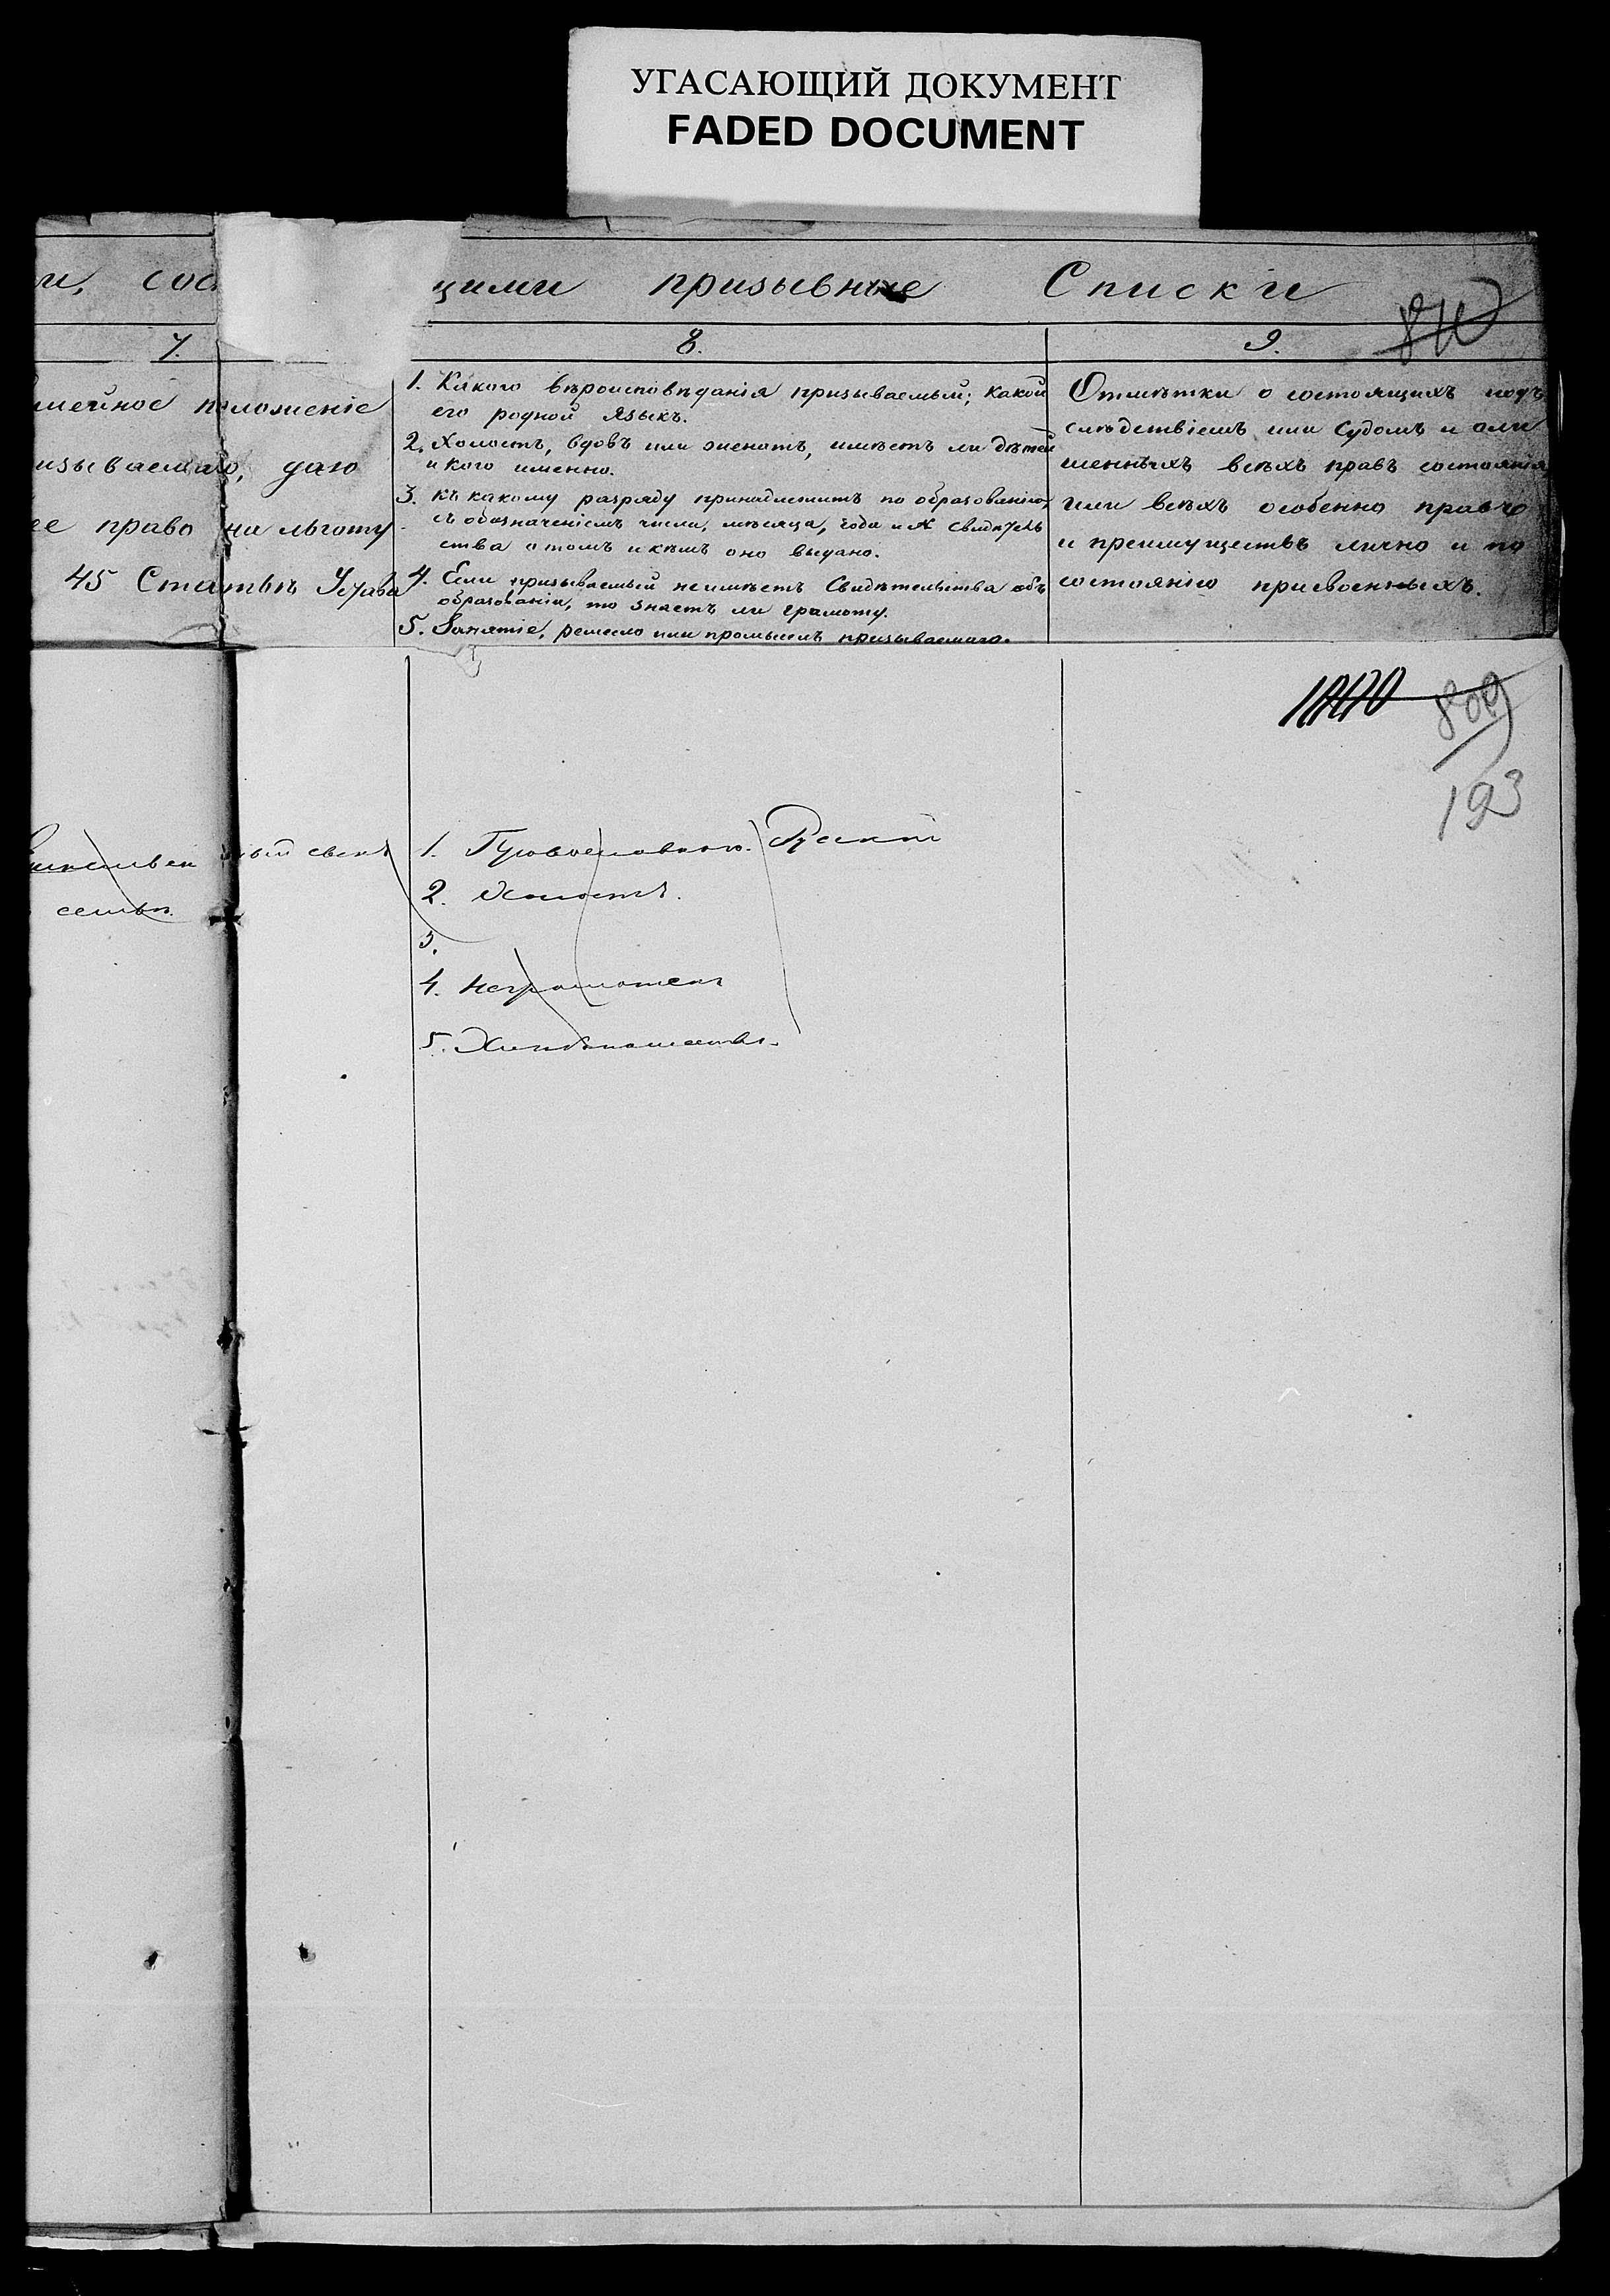 УГАСАЮЩИЙ ДОКУМЕНТ
FADED DOCUMENT
щими призывные Списки
810
7.
8.
9.
мейное положеніе
изываемаго, даю
ее право на льготу
45 Статьѣ Устава
1. Какого вѣроисповѣданія призываемый; какой
его родной языкъ.
2. Холостъ, вдовъ или женатъ, имѣетъ ли дѣтей
и кого именно.
3. Къ какому разряду принадлежитъ по образованію,
съ обозначеніемъ числа, мѣсяца, года и № свидѣтель
ства о томъ и кѣмъ оно выдано.
4. Если призываемый неимѣетъ Свидѣтельства объ
образованіи, то знаетъ ли грамоту.
5. Занятіе, ремесло или промыселъ призываемаго.
Отмѣтки о состоящихъ подъ
слѣдствіемъ или судомъ и оли
шенныхъ всѣхъ правъ состоянія
или всѣхъ особенно правъ
и преимуществъ лично и по
состоянію присвоенныхъ.
809
193
семьѣ.
1. Православнаго. Русскій
2. Холостъ.
3.
4. Неграмотенъ
5. Хлебопашество.